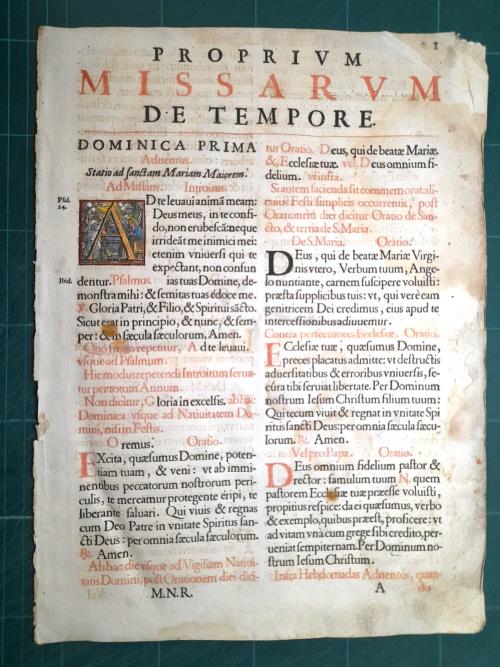 1
PROPRIVM
MISSARVM
DE TEMPORE.
DOMINICA PRIMA
Aduentus.
Statio ad sanctam Mariam Maiorem.
Ad Missam. Introitus.
Psal. 24.
AD te leuaui animã meam:
Deus meus, in te confi-
do, non erubescã: neque
irrideãt me inimici mei:
etenim vniuersi qui te
expectant, non confun
Ibid.
dentur. Psalmus. ias tuas Domine, de-
monstra mihi: & semitas tuas edoce me.
℣. Gloria Patri, & Filio, & Spiritui sãcto.
Sicut erat in principio, & nunc, & sem-
per: & in sæcula sæculorum, Amen.
Quo finito repetitur, Ad te leuaui.
vsque ad Psalmum.
Hic modus repetendi Introitum serua-
tur per totum Annum.
Non dicitur, Gloria in excelsis. ab hac
Dominica vsque ad Natiuitatem Do-
mini, nisi in Festis.
Oremus. Oratio.
EXcita, quæsumus Domine, poten-
tiam tuam, & veni: vt ab immi-
nentibus peccatorum nostrorum peri-
culis, te mereamur protegente éripi, te
liberante saluari. Qui viuis & regnas
cum Deo Patre in vnitate Spiritus san-
cti Deus: per omnia sæcula sæculorum.
℟. Amen.
Ab hac die vsque ad Vigiliam Natiui-
tatis Domini, post Orationem diei dici-
M.N.R.
tur Oratio. Deus, qui de beatæ Mariæ.
&, Ecclesiæ tuæ. vel, Deus omnium fi-
delium. vt infra.
Si autem facienda sit commemorat. ali-
cuius Festi simplicis occurrentis, post
Orationem diei dicitur Oratio de San-
cto, & tertia de S. Maria.
De S. Maria. Oratio.
DEus, qui de beatæ Mariæ Virgi-
nis vtero, Verbum tuum, Ange-
lo nuntiante, carnem suscipere voluisti:
præsta supplicibus tuis: vt, qui verè eam
genitricem Dei credimus, eius apud te
intercessionibus adiuuemur.
Contra persecutores Ecclesiæ. Oratio.
ECclesiæ tuæ, quæsumus Domine,
preces placatus admitte: vt destructis
aduersitatibus & erroribus vniuersis, se-
cura tibi seruiat libertate. Per Dominum
nostrum Iesum Christum filium tuum:
Qui tecum viuit & regnat in vnitate Spi
ritus sancti Deus: per omnia sæcula sæcu-
lorum. ℟. Amen.
Vel pro Papa. Oratio.
DEus omnium fidelium pastor &
rector: famulum tuum N. quem
pastorem Ecclesiæ tuæ præesse voluisti,
propitius respice: da ei quæsumus, verbo
& exemplo, quibus præest, proficere: vt
ad vitam vnà cum grege sibi credito, per-
ueniat sempiternam. Per Dominum no-
strum Iesum Christum.
Infra Hebdomadas Aduentus, quan-
A do